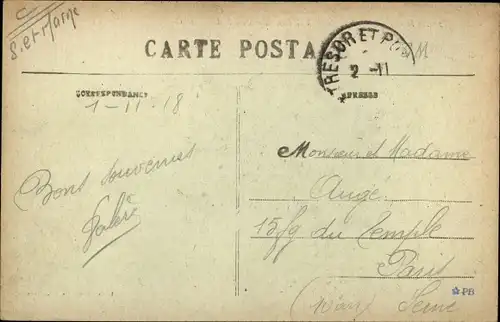 S. et Marne
CARTE POSTALE
TRESOR ET POSTES
2 - 11
CORRESPONDANCE
ADRESSE
1-11-18
Monsieur et Madame
Augé
15 fg du Temple
Paris
Seine
Bons souvenirs
PB